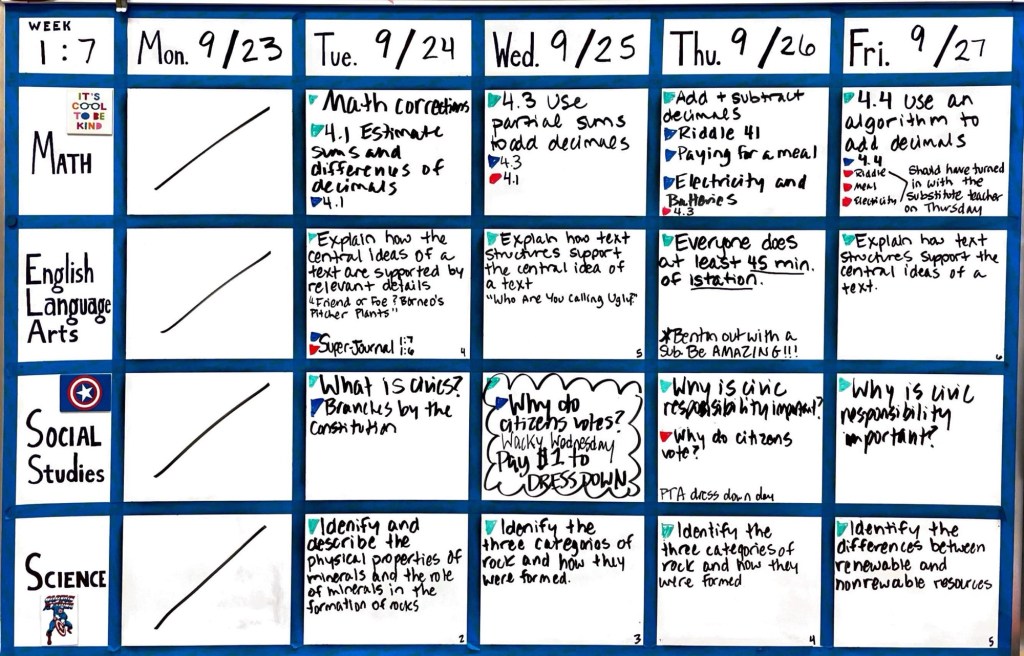 WEEK
1:7
Mon. 9/23
Tue. 9/24
Wed. 9/25
Thu. 9/26
Fri. 9/27
IT'S
COOL
TO BE
KIND
MATH
Math corrections
4.1 Estimate
sums and
differences of
decimals
4.1
4.3 Use
partial sums
to add decimals
4.3
4.1
Add + subtract
decimals
Riddle 41
Paying for a meal
Electricity and
Batteries
4.3
4.4 Use an
algorithm to
add decimals
4.4
Riddle
Meal
Electricity
Should have turned
in with the
substitute teacher
on Thursday
English
Language
Arts
Explain how the
central ideas of a
text are supported by
relevant details
"Friend or Foe? Borneo's
Pitcher Plants"
Super-Journal 1:7
1:6
4
Explain how text
structures support
the central idea of
a text
"Who Are You Calling Ugly?"
5
Everyone does
at least 45 min.
of istation.
*Bentin out with a
sub. Be AMAZING!!!
Explain how text
structures support the
central ideas of a
text.
6
SOCIAL
Studies
What is civics?
Branches by the
Constitution
Why do
citizens votes?
Wacky Wednesday
Pay $1 to
DRESS DOWN
Why is civic
responsibility important?
Why do citizens
vote?
PTA dress down day
Why is civic
responsibility
important?
SCIENCE
Idenify and
describe the
physical properties of
minerals and the role
of minerals in the
formation of rocks
2
Idenify the
three categories of
rock and how they
were formed.
3
Identify the
three categories of
rock and how they
were formed
4
Identify the
differences between
renewable and
nonrewable resources
5